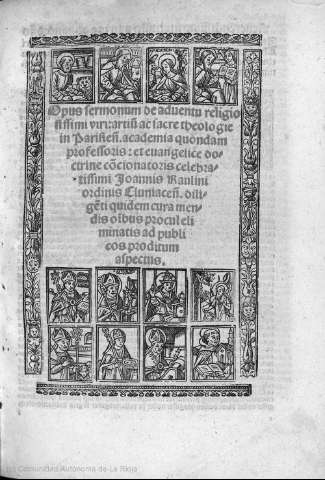 Opus sermonum de aduentu religio
sissimi viri: artiū ac sacre theologie
in Parisien. academia quondam
professoris: et euangelice do-
ctrine cōcionatoris celebra-
tissimi Joannis Raulini
ordinis Cluniacen. dili-
gēti quidem cura men-
dis oībus procul eli
minatis ad publi
cos proditum
aspectus.
(c) Comunidad Autónoma de La Rioja